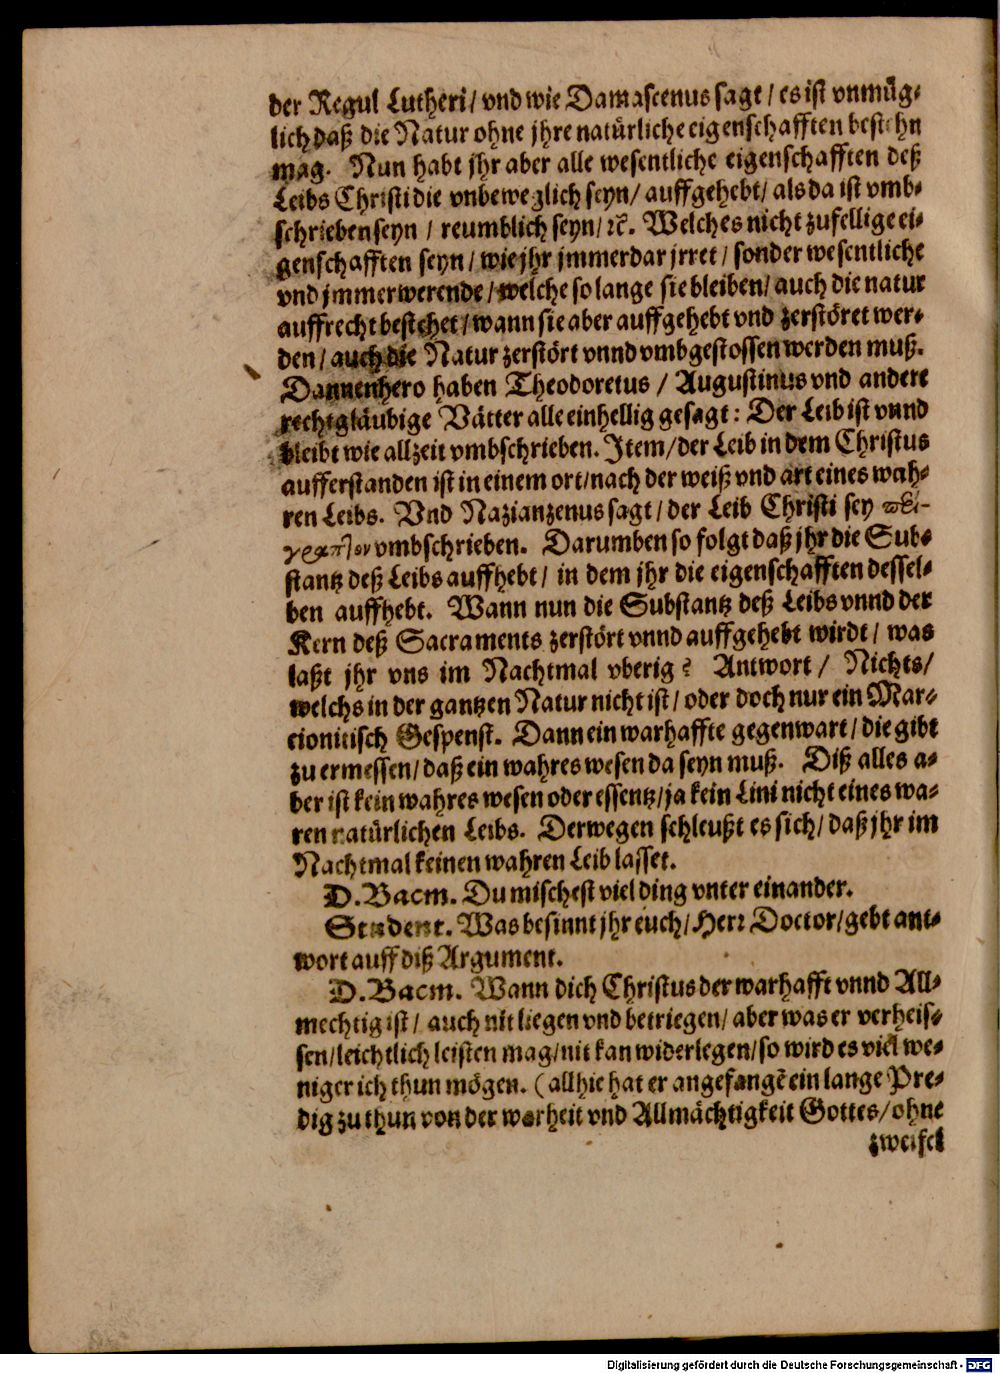 der Regul Lutheri/ vnd wie Damascenus sagt/ es ist vnmüg-
lich daß die Natur ohne jhre natürliche eigenschafften bestehn
mag. Nun habt jhr aber alle wesentliche eigenschafften deß
Leibs Christi die vnbeweglich seyn/ auffgehebt/ als da ist vmb-
schrieben seyn / reumblich seyn/ ꝛc. Welches nicht zufellige ei-
genschafften seyn/ wie jhr jmmerdar jrret/ sonder wesentliche
vnd jmmerwerende/ welche so lange sie bleiben/ auch die natur
auffrecht bestehet/ wann sie aber auffgehebt vnd zerstöret wer-
den/ auch die Natur zerstört vnnd vmbgestossen werden muß.
Dannenhero haben Theodoretus / Augustinus vnd andere
rechtgläubige Vätter alle einhellig gesagt: Der Leib ist vnnd
bleibt wie allzeit vmbschrieben. Item/ der Leib in dem Christus
aufferstanden ist in einem ort/ nach der weiß vnd art eines wah-
ren Leibs. Vnd Nazianzenus sagt/ der Leib Christi sey πεϱί-
γϱαπτον vmbschrieben. Darumben so folgt daß jhr die Sub-
stantz deß Leibs auffhebt/ in dem jhr die eigenschafften dessel-
ben auffhebt. Wann nun die Substantz deß Leibs vnnd der
Kern deß Sacraments zerstört vnnd auffgehebt wirdt/ was
laßt jhr vns im Nachtmal vberig? Antwort/ Nichts/
welchs in der gantzen Natur nicht ist/ oder doch nur ein Mar-
cionitisch Gespenst. Dann ein warhaffte gegenwart/ die gibt
zu ermessen/ daß ein wahres wesen da seyn muß. Diß alles a-
ber ist kein wahres wesen oder essentz/ ja kein Lini nicht eines wa-
ren natürlichen Leibs. Derwegen schleußt es sich/ daß jhr im
Nachtmal keinen wahren Leib lasset.
D. Bacm. Du mischest viel ding vnter einander.
Student. Was besinnt jhr euch/ Herr Doctor/ gebt ant-
wort auff diß Argument.
D. Bacm. Wann dich Christus der warhafft vnnd All-
mechtig ist/ auch nit liegen vnd betriegen/ aber was er verheis-
sen/ leichtlich leisten mag/ nit kan widerlegen/ so wird es viel we-
niger ich thun mögen. (allhie hat er angefangẽ ein lange Pre-
dig zu thun von der warheit vnd Allmächtigkeit Gottes/ ohne
zweifel
Digitalisierung gefördert durch die Deutsche Forschungsgemeinschaft - DFG